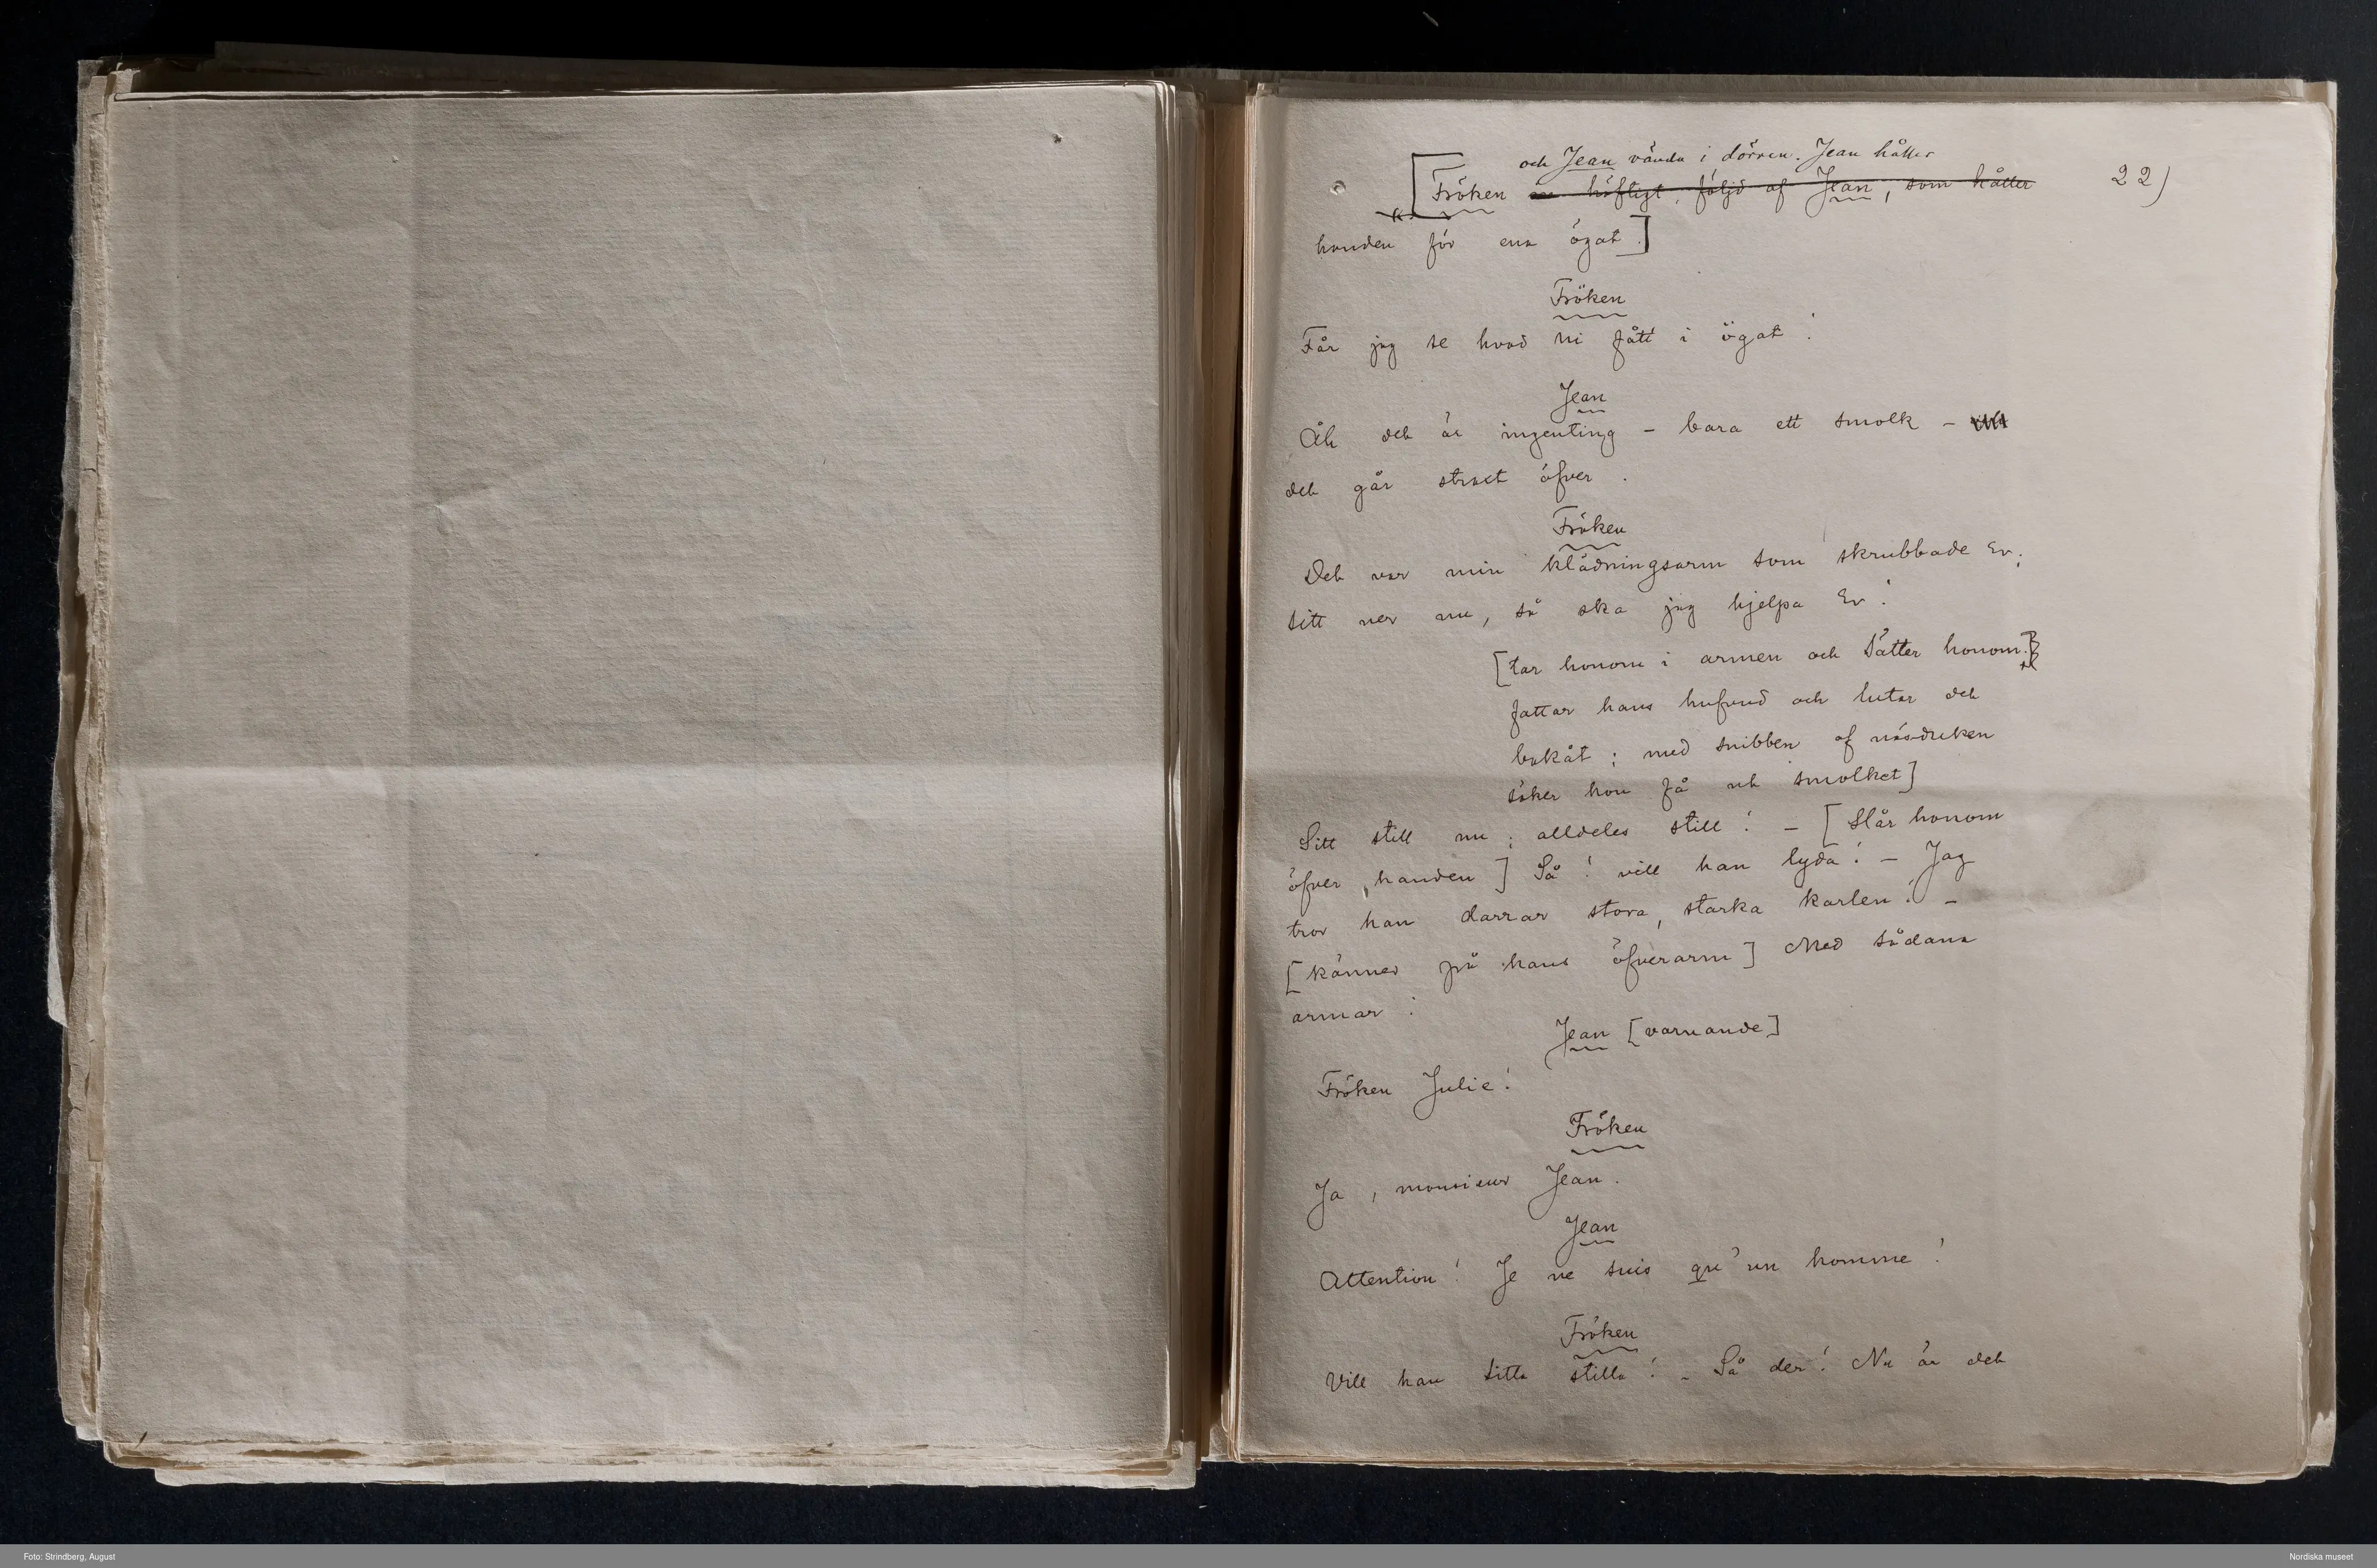 och Jean vända i dörren. Jean håller
[Fröken häftigt, följd af Jean, som håller
22)
handen för ena ögat.]
Fröken
Får jag se hvad ni fått i ögat!
Jean
Åh det är ingenting – bara ett smolk –
det går stract öfver.
Fröken
Det var min klädningsarm som skrubbade Er;
sitt ner nu, så ska jag hjelpa Er!
[tar honom i armen och sätter honom.
fattar hans hufvud och lutar det
bakåt; med snibben af näsduken
söker hon få ut smolket]
Sitt still nu; alldeles still! – [Slår honom
öfver handen] Så! vill han lyda! – Jag
tror han darrar stora, starka karlen! –
[känner på hans öfverarm] Med sådana
armar!
Jean [varnande]
Fröken Julie!
Fröken
Ja, monsieur Jean.
Jean
Attention! Je ne suis qu'un homme!
Fröken
Vill han sitta stilla! – Så der! Nu är det
Foto: Strindberg, August
Nordiska museet